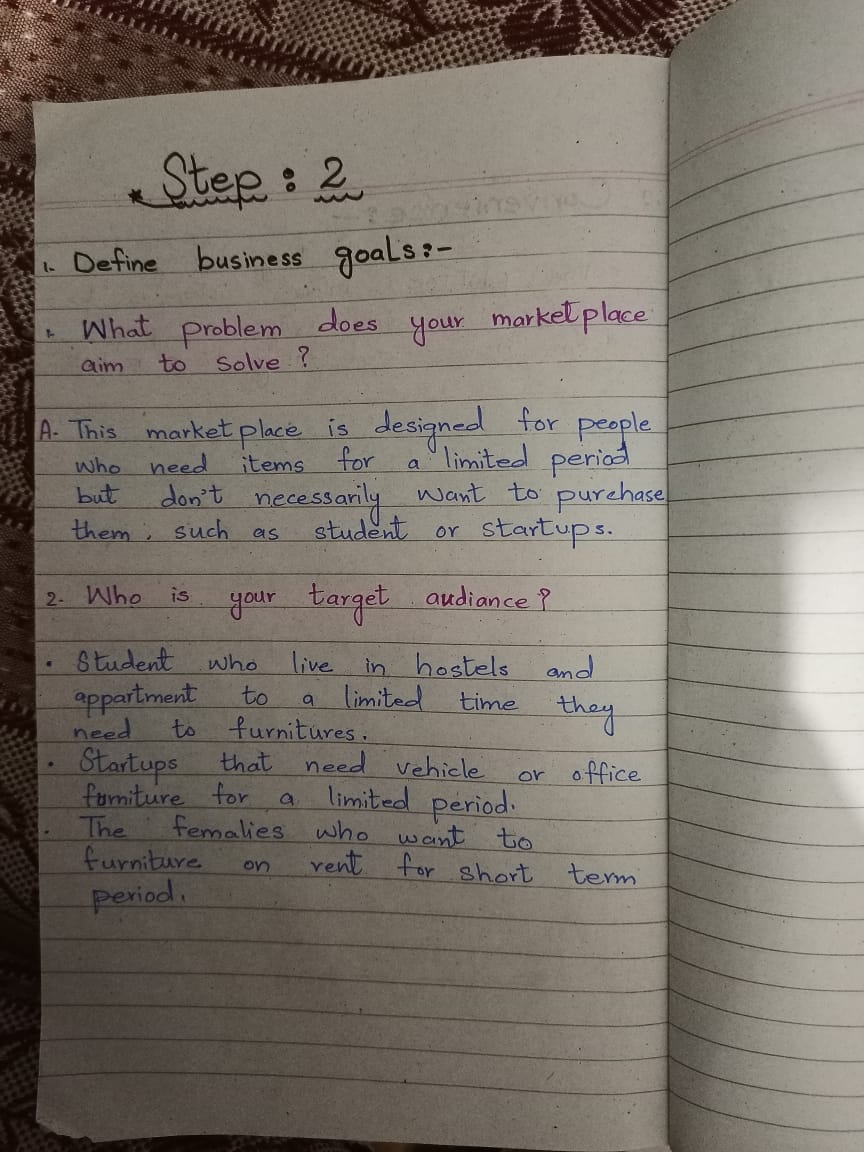 * Step : 2
1. Define business goals:-
1. What problem does your marketplace
aim to solve ?
A. This marketplace is designed for people
who need items for a limited period
but don't necessarily want to purchase
them, such as student or startups.
2. Who is your target audiance ?
• Student who live in hostels and
appartment to a limited time they
need to furnitures.
• Startups that need vehicle or office
forniture for a limited period.
• The femalies who want to
furniture on rent for short term
period.